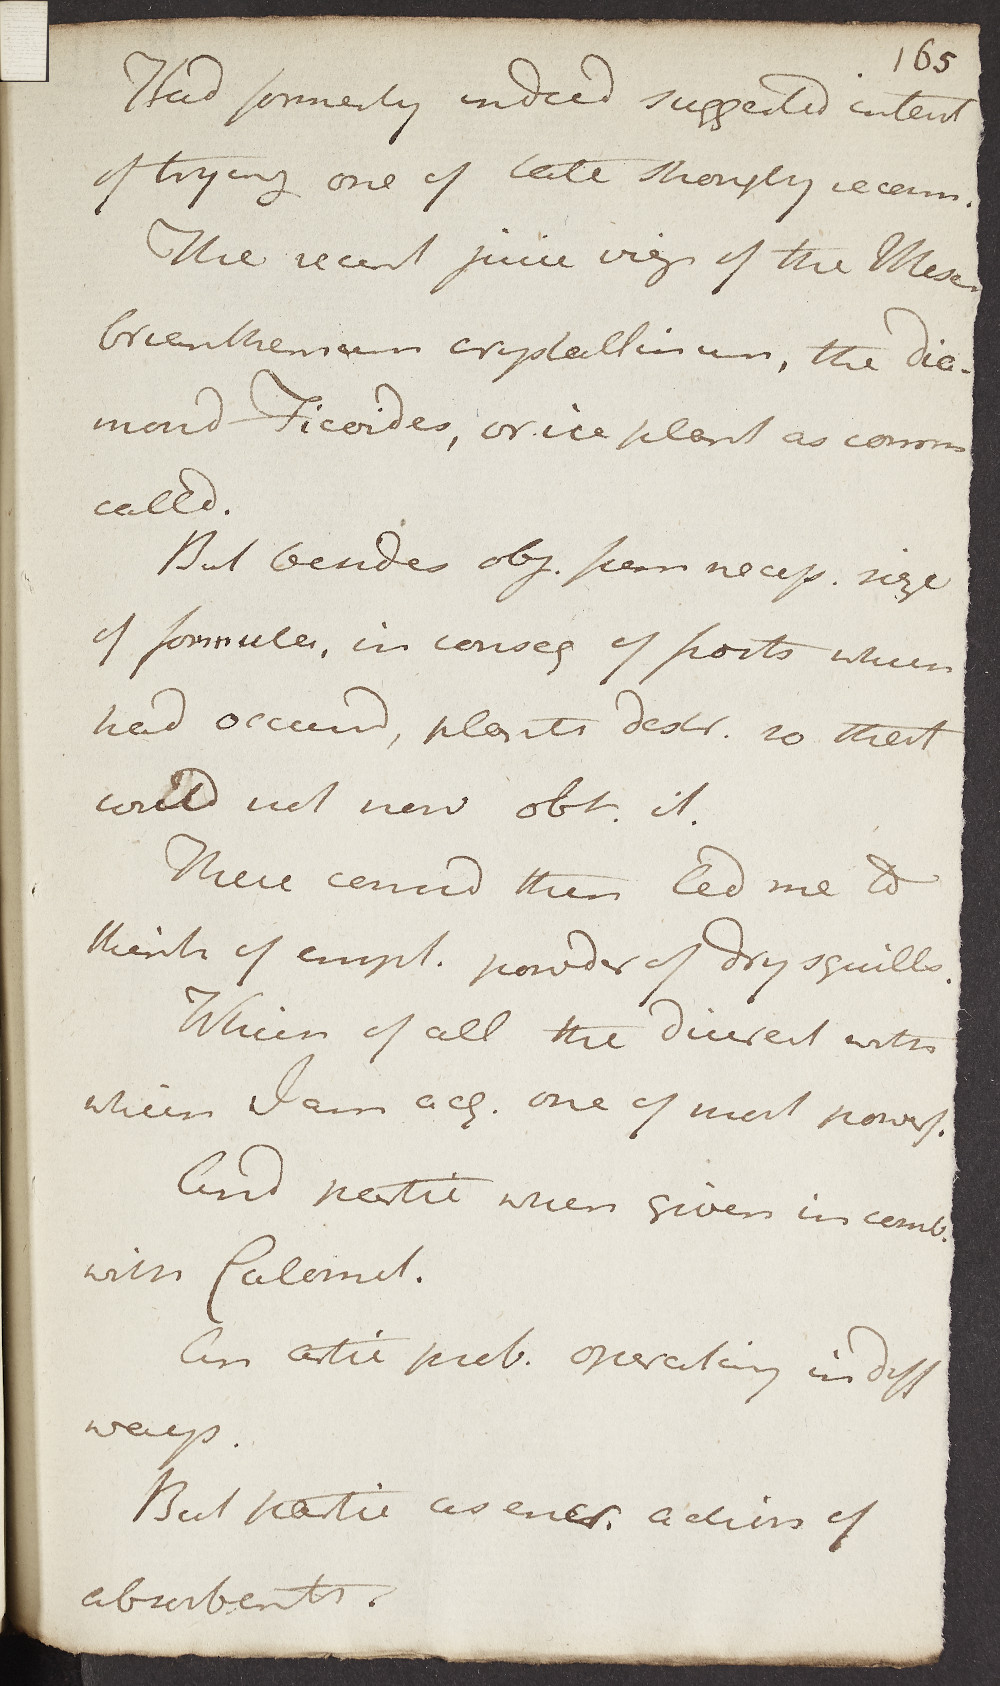 165
Had formerly indeed suggested intent
of trying one of late strongly recom.
The recent juice viz of the Mesem
brianthemum crystallinum, the dia-
mond Ficoides, or ice plant as comm
called.
But besides obj. from necess. size
of formula, in conseq of frosts which
had occurred, plants destr. so that
could not now obt. it.
These consid then led me to
think of empl. powder of dry squills.
Which of all the diuret with
which I am acq. one of most powerf.
And partic when given in comb.
with Calomel.
An artic prob. operating in diff
ways.
But partic as encr. action of
absorbents.